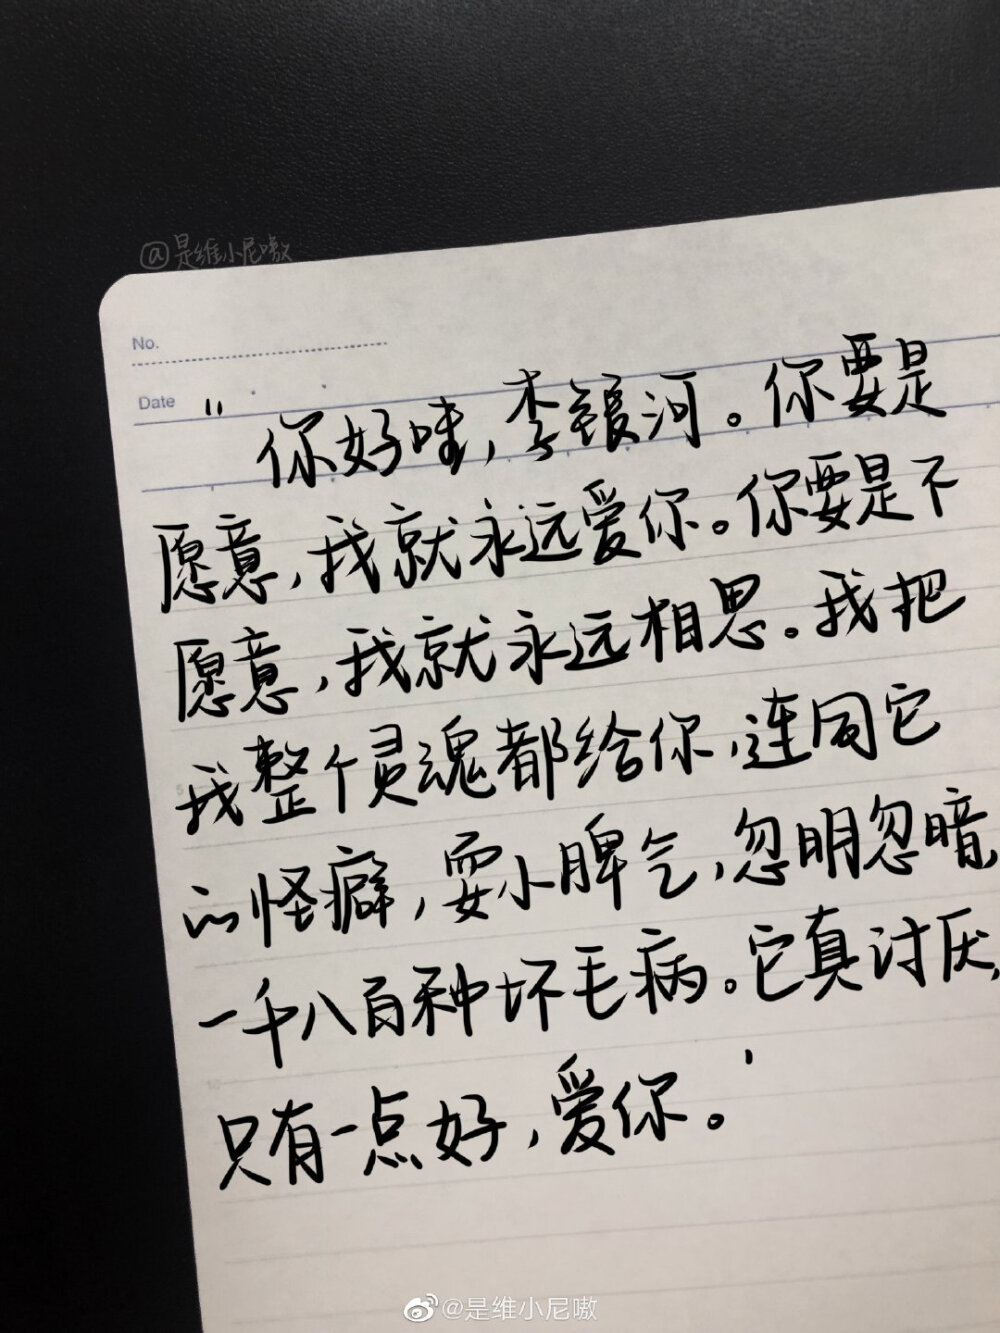 @是维小尼嗷
No.
Date
"你好哇，李银河。你要是
愿意，我就永远爱你。你要是不
愿意，我就永远相思。我把
我整个灵魂都给你，连同它
的怪癖，耍小脾气，忽明忽暗，
一千八百种坏毛病。它真讨厌，
只有一点好，爱你。'
@是维小尼嗷